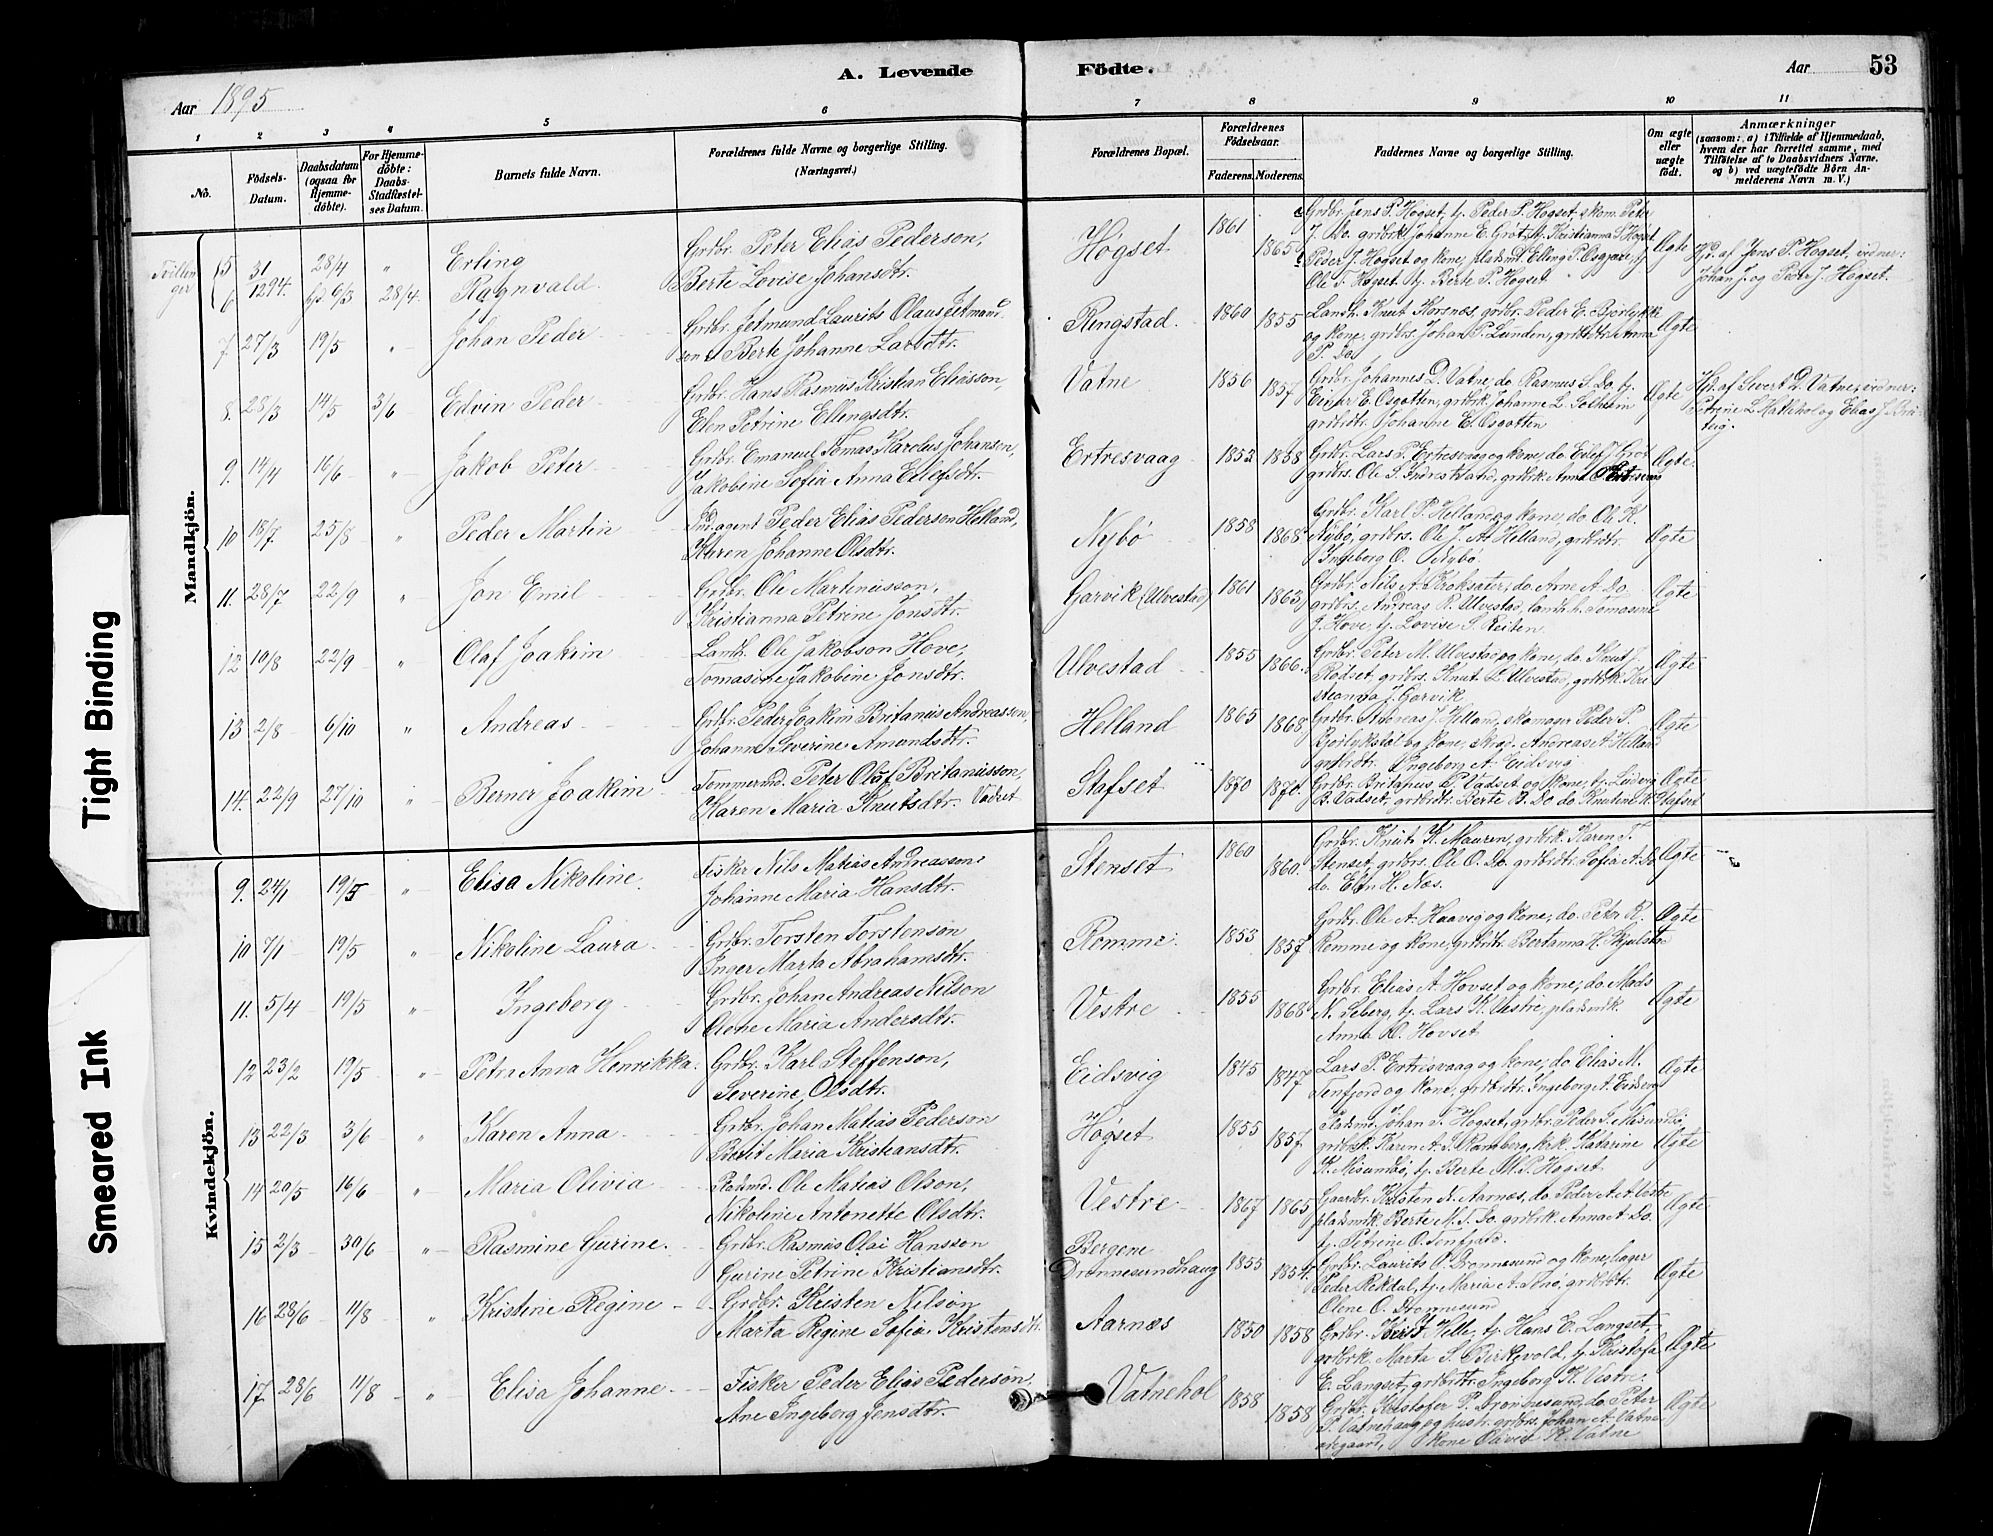 A. Levende Födte.
Aar 1895
Aar 53
1 2 3 4 5 6 7 8 9 10 11
No.
Födsels-Datum.
Daabsdatum (ogsaa for Hjemme-döbte).
For Hjemme-döbte: Daabs-Stadfæstel-ses Datum.
Barnets fulde Navn.
Forældrenes fulde Navne og borgerlige Stilling. (Næringsvei.)
Forældrenes Bopæl.
Forældrenes Födselsaar.
Faderens. Moderens.
Faddernes Navne og borgerlige Stilling.
Om ægte eller uægte födt.
Anmærkninger
(saasom: a) i Tilfælde af Hjemmedaab, hvem der har forrettet samme, med Tilföielse af to Daabsvidners Navne. og b) ved uægtefödte Börn Anmelderens Navn m. V.)
Mandkjön.
Tvillinger
5 31/12 94. 28/4 " Erling Grdbr. Peter Elias Pederson, Høgset 1861 Ægte
6 6/3 28/4. Ragnvald Berte Lovise Johansdtr. 1865
Grdbr. Jens P. Høgset, tj. Peder P. Høgset, skom. Peter
Peder J. Høgset og kone, pladsmd. Elling P.
Ole T. Høgset, tj. Berte P. Høgset
Hjd. af Jens P. Høgset, vidner:
Johan J. og Peder J. Høgset.
7. 27/3 19/5 " Johan Peder Grdbr. Jetmund Laurits Olaus Jetmund- Ringstad. 1860 1855 Ægte
son Berte Johanne Larsdtr.
Landh. Knut Korsnes, grdbr. Peder E. Bjørlykke
og kone, grdbrs. Johan P. Lunden, grdbrdtr. Anna
P. do.
8. 28/3 14/5 3/6 Edvin Peder Grdbr. Hans Rasmus Kristian Eliasson, Vatne 1856 1857 Ægte
Elen Petrine Ellingsdtr.
Grdbr. Johannes D. Vatne, do. Rasmus S. Do. tj.
Einer E. Osgotten, grdbrk. Johanne L. Solheim
grdbrdtr. Johanne E. Osgotten
Hjd. af Sivert D. Vatne, vidner:
Petrine L. og Elias J.
9. 14/4 16/6 " Jakob Peter Grdbr. Emanuel Tomas Karolus Johansen, Ertresvaag 1853 1858 Ægte.
Jakobine Sofia Anna Eilefsdtr.
Grdbr. Lars P. Ertresvaag og kone, do. Eilef J.
grdbrs. Ole S. grdbrk. Anna
10 18/7. 25/8 " Peder Martin agent Peder Elias Pederson Helland, Nybø 1858 1868 Ægte
Karen Johanne Olsdtr.
Grdbr. Karl P. Helland og kone, do. Ole K.
Nybø, grdbrs. Ole J. A. Helland, grdbrdtr.
Ingeborg O. Nybø
11. 28/7 22/9 " Jon Emil Grdbr. Ole Martinusson, Garvik (Ulvestad) 1861 1863 Ægte
Kristianna Petrine Jonsdtr.
Grdbr. Nils A. Kroksæter, do. Arne A. Do.
grdbrs. Andreas R. Ulvestad, landh.h. Tomasine
J. Hove, tj. Lovise S. Reiten.
12 10/8 22/9 " Olaf Joakim Landh. Ole Jakobson Hove, Ulvestad 1855 1866. Ægte
Tomasine Jakobine Jonsdtr.
Grdbr. Peter M. Ulvestad og kone, do. Knut J.
Rødset, grdbrs. Knut L. Ulvestad, grdbrk. Kri-
stianna J. Garvik
13 2/8 6/10 " Andreas Grdbr. Peder Joakim Britanus Andreassen, Helland 1865 1868 Ægte
Johanne Severine Amundsdtr.
Grdbr. Andreas J. Helland, skomager Peder P.
Bjørlykstøl og kone, skræd. Andreas A. Helland
grdbrdtr. Ingeborg A. Eidsvig
14. 22/9 27/10 " Berner Joakim Tømmermd. Peter Olaf Britanusson, Stafset 1870 1870. Ægte
Karen Maria Knutsdtr. Vadset
Grdbr. Britanus P. Vadset og kone, tj. Ludvig
B. Vadset, grdbrdtr. Berte B. Do do. Knutine K. Stafset
Kvindekjön.
9. 24/1 19/5 " Elisa Nikoline. Fisker Nils Matias Andreassen Stenset 1860 1860. Ægte
Johanne Maria Hansdtr.
Grdbr. Knut K. Mauren, grdbrk. Karen T.
Stenset, grdbrs. Ole O. Do. grdbrdtr. Sofia A. Do
do. Elen H. Næs.
10 7/1 19/5 " Nikoline Laura Grdbr. Torsten Torstenson Romme 1853 1857 Ægte
Inger Marta Abrahamsdtr.
Grdbr. Ole A. Haavig og kone, do. Peter K.
Romme og kone, grdbrdtr. Bertanna H.
11. 5/4 19/5 " Ingeborg Grdbr. Johan Andreas Nilson Vestre 1855 1868 Ægte
Olene Maria Andersdtr.
Grdbr. Elias A. Hovset og kone, do. Mads
N. Seberg, tj. Lars K. Vestre, pladsmk.
Anna O. Hovset
12 23/2 19/5 " Petra Anna Henrikka. Grdbr. Karl Steffenson, Eidsvig 1845 1847 Ægte
Severine Olsdtr.
Lars P. Ertresvaag og kone, do Elias M.
Tenfjord og kone, grdbrdtr. Ingeborg A. Eidsvig
13 22/3 3/6 " Karen Anna Grdbr. Johan Matias Pederson Høgset 1855 1857. Ægte
Berit Maria Kristiansdtr.
Pladsmd. Johan T. Høgset, grdbr. Peder S. Misundbø,
grdbrk. Karen A. J. Ramsberg, krk. Katarine
K. Misundbø, tj. Berte M. P. Høgset
14 20/5 16/6 " Maria Olivia Pladsmd. Ole Matias Olson, Vestre 1867 1865 Ægte
Nikoline Antonette Olsdtr.
Gaardbr. Kristen N. Aarnæs, do. Peder A. A. Vestre
pladsmdk. Berte M. T. Do. grdbrk. Anna A. Do.
tj. Petrine O. Tenfjord.
15 2/3 30/6 " Rasmine Gurine. Grdbr. Rasmus Olai Hansson Bergene Drønnesundhaug 1855 1854. Ægte
Gurine Petrine Kristiansdtr.
Grdbr. Laurits O. Drønnesund og kone,
Peder Rekdal, tj. Maria A. grdbrdtr.
Olene O. Drønnesund
16 28/6 11/8 " Kristine Regine Grdbr. Kristen Nilson Aarnæs 1850 1858 Ægte
Marta Regine Sofia Kristensdtr.
Grdbr. Helle, tj. Hans E. Langset,
grdbrk. Marta S. Birkevold, tj. Kristofa
E. Langset, grdbrdtr. Ingeborg K. Vestre.
17. 28/6 11/8 " Elisa Johanne Fisker Peder Elias Pederson Vatnehol 1858 1858 Ægte
Ane Ingeborg Jensdtr.
Grdbr. Kristofer P. Drønnesund, do. Peter
P. Vatnehaug og hustr. grdbrs. Johan A. Vatne
ødegaard, kone Olivia K. Vatne
Tight Binding
Smeared Ink